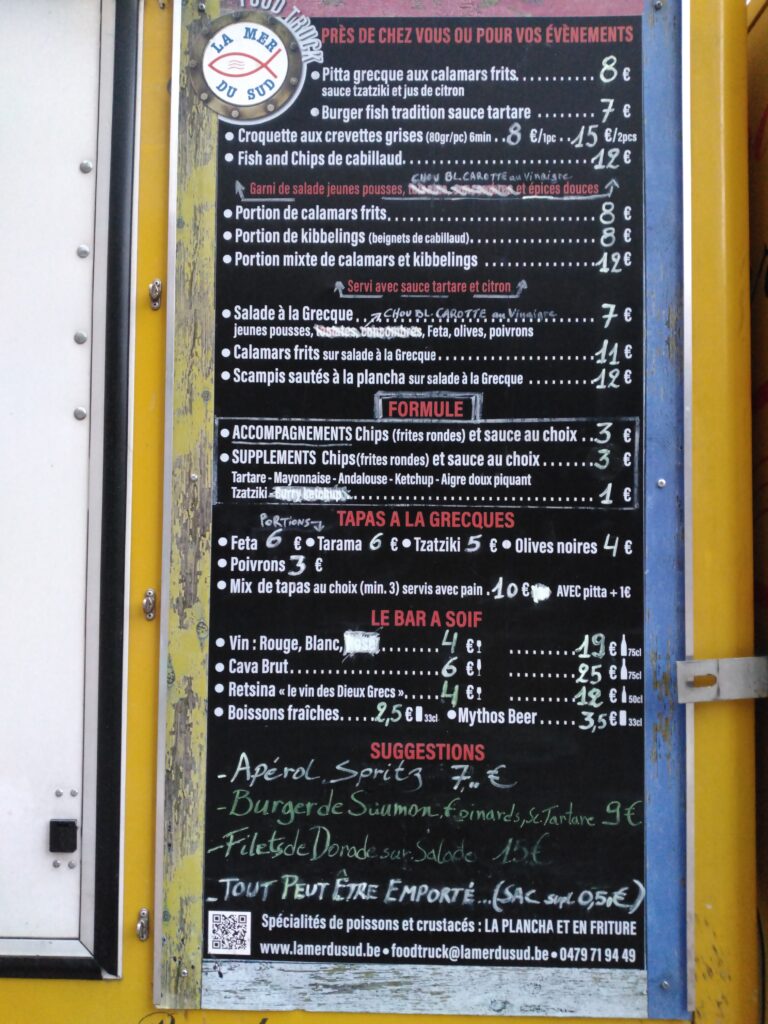 FOOD TRUCK
LA MER DU SUD
PRÈS DE CHEZ VOUS OU POUR VOS ÉVÈNEMENTS
• Pitta grecque aux calamars frits.......... 8 €
sauce tzatziki et jus de citron
• Burger fish tradition sauce tartare ........ 7 €
• Croquette aux crevettes grises (80gr/pc) 6min .. 8 €/1pc .. 15 €/2pcs
• Fish and Chips de cabillaud.................... 12 €
CHOU BL. CAROTTE au Vinaigre
Garni de salade jeunes pousses, et épices douces
• Portion de calamars frits......................... 8 €
• Portion de kibbelings (beignets de cabillaud)................ 8 €
• Portion mixte de calamars et kibbelings ............ 12 €
Servi avec sauce tartare et citron
• Salade à la Grecque .. CHOU BL. CAROTTE au Vinaigre 7 €
jeunes pousses, tomates, concombres, Feta, olives, poivrons
• Calamars frits sur salade à la Grecque..................... 11 €
• Scampis sautés à la plancha sur salade à la Grecque ......... 12 €
FORMULE
• ACCOMPAGNEMENTS Chips (frites rondes) et sauce au choix ..3 €
• SUPPLEMENTS Chips(frites rondes) et sauce au choix.......3 €
Tartare - Mayonnaise - Andalouse - Ketchup - Aigre doux piquant
Tzatziki - Curry ketchup.................................. 1 €
PORTIONS
TAPAS A LA GRECQUES
• Feta 6 € • Tarama 6 € • Tzatziki 5 € • Olives noires 4 €
• Poivrons 3 €
• Mix de tapas au choix (min. 3) servis avec pain .10 € AVEC pitta + 1€
LE BAR A SOIF
• Vin : Rouge, Blanc, ........ 4 € .......... 19 € 75cl
• Cava Brut................... 6 € .......... 25 € 75cl
• Retsina « le vin des Dieux Grecs »..... 4 € .......... 12 € 50cl
• Boissons fraîches.... 2,5 € 33cl • Mythos Beer ..... 3,5 € 33cl
SUGGESTIONS
- Apérol Spritz 7,, €
- Burger de Saumon, Epinards, Sc. Tartare 9 €
- Filets de Dorade sur Salade 15 €
- TOUT PEUT ÊTRE EMPORTÉ...(SAC supl 0,50€)
Spécialités de poissons et crustacés : LA PLANCHA ET EN FRITURE
www.lamerdusud.be • foodtruck@lamerdusud.be • 0479 71 94 49